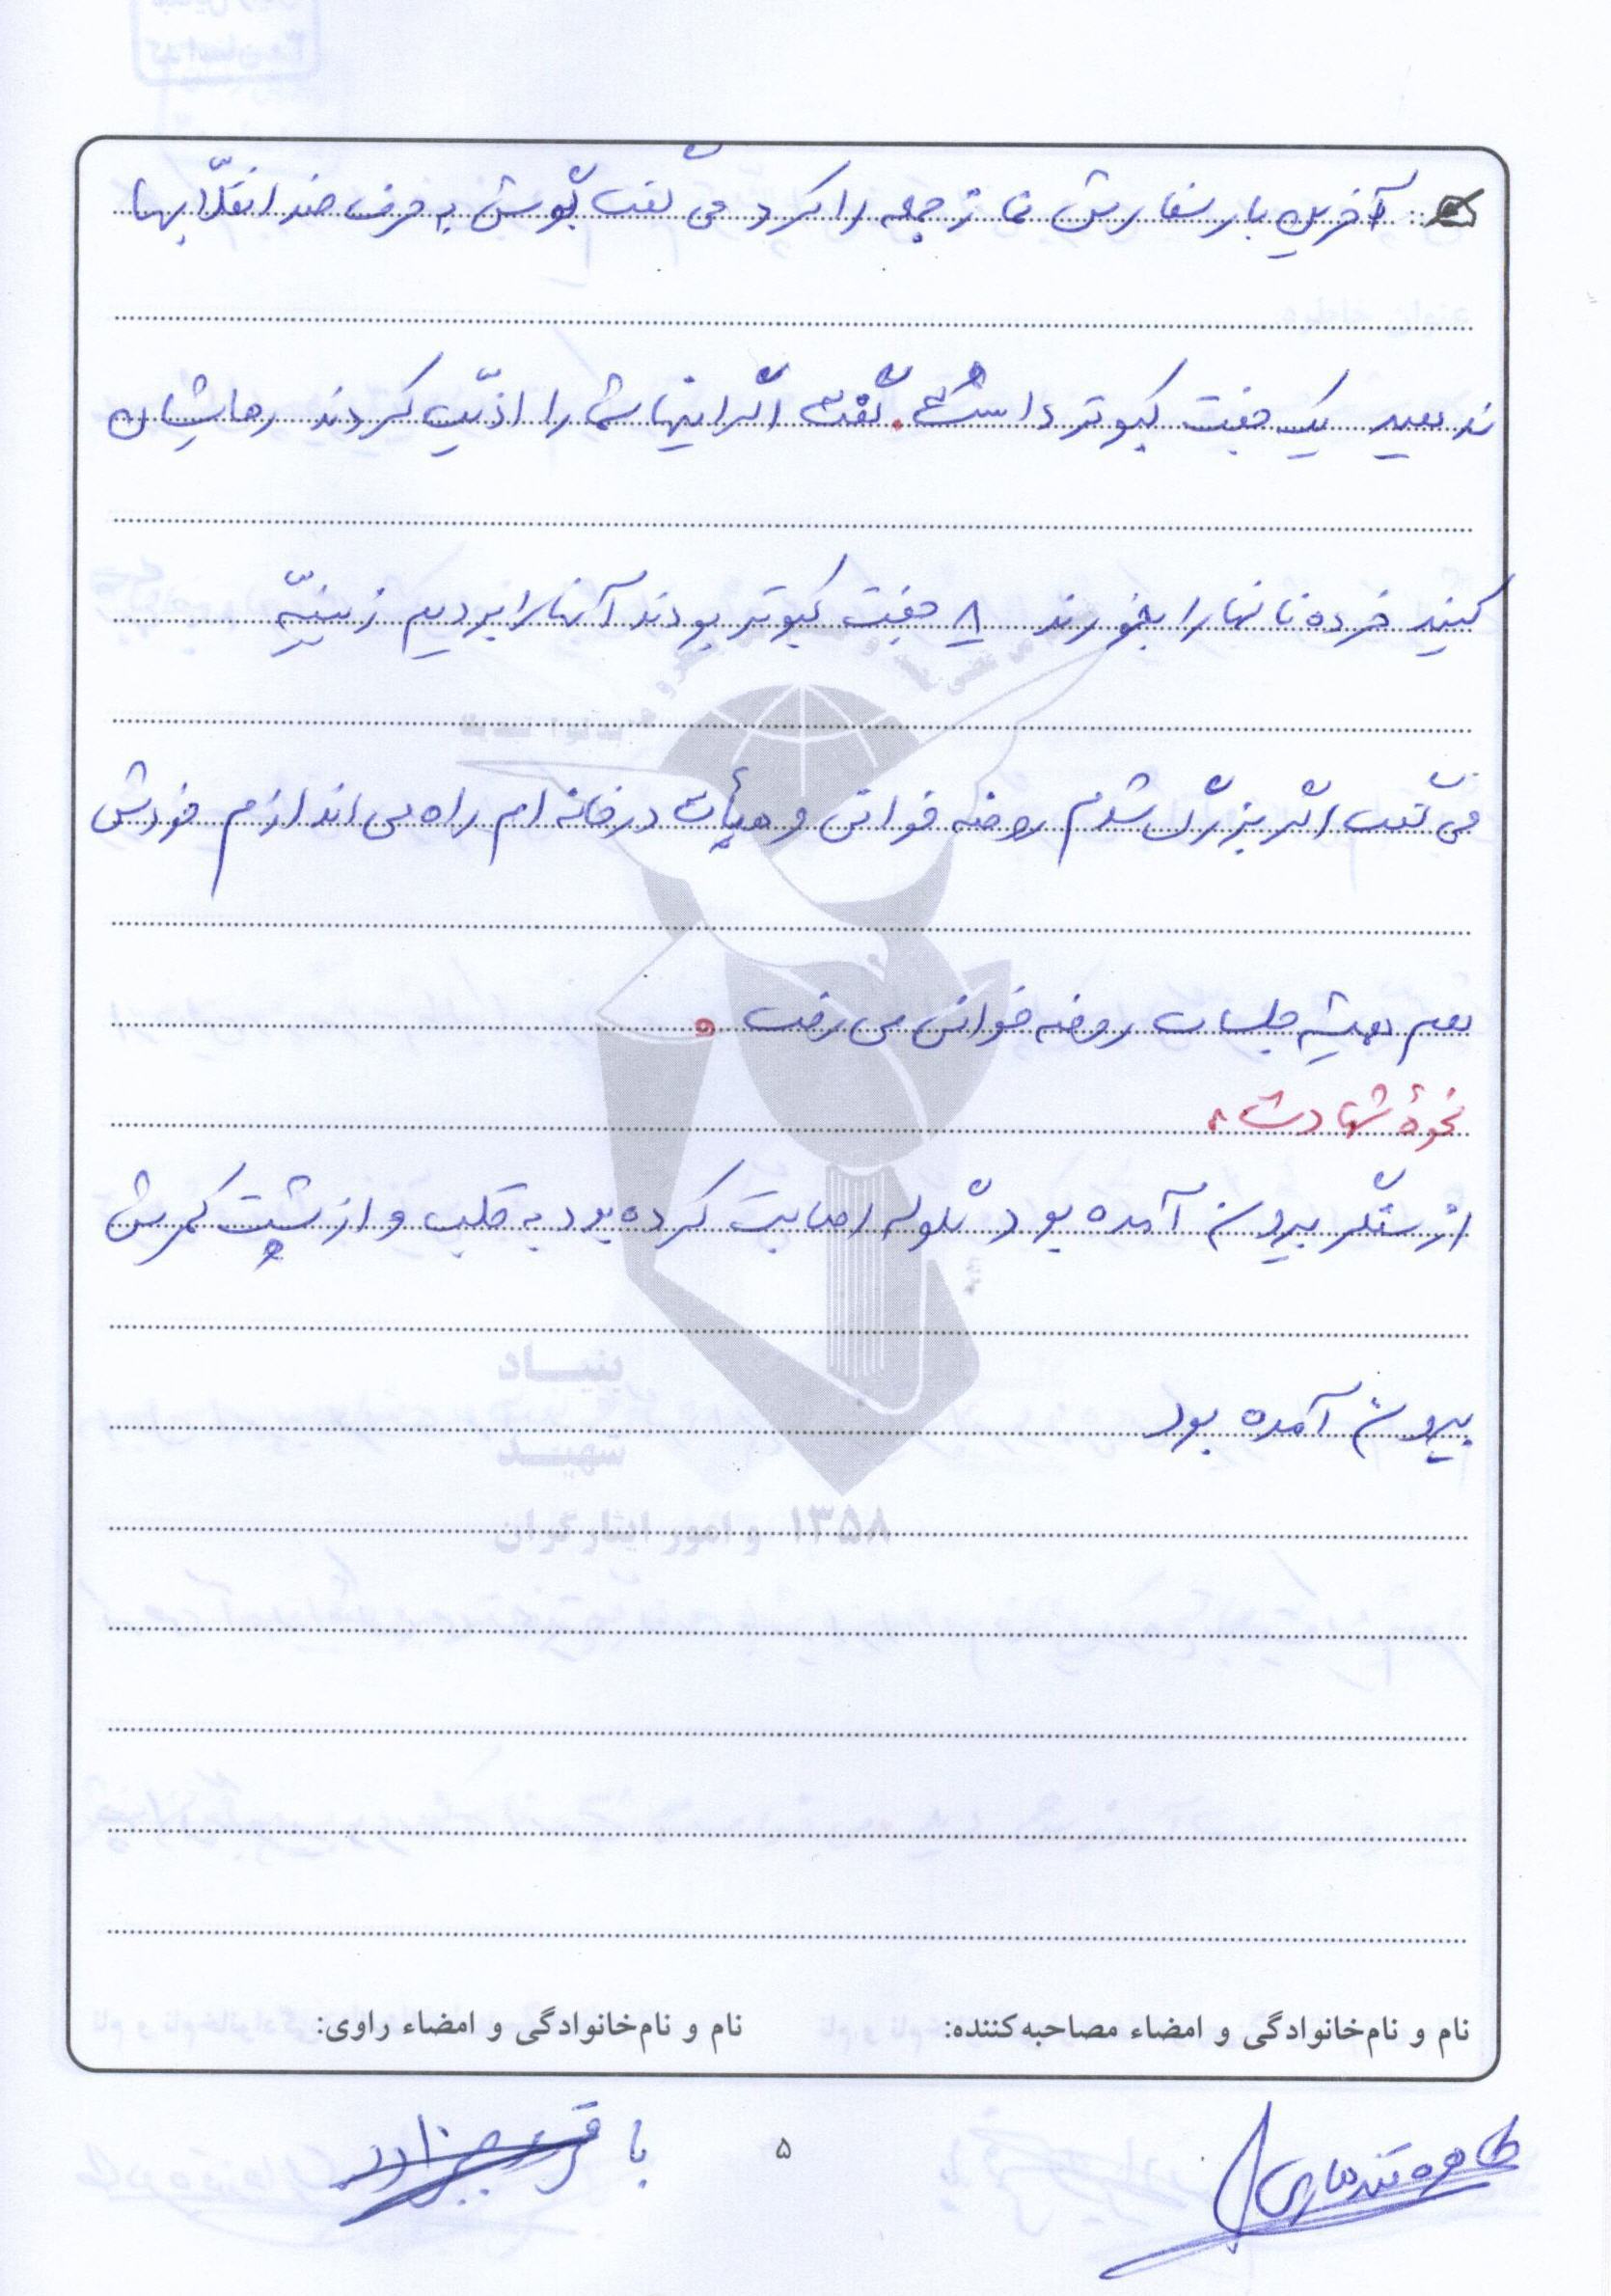 آخرین بار سفارش نماز جمعه را کرد می گفت گوش به حرف ضد انقلابها
ندهید یک جفت کبوتر داشت. گفت اگر اینها شما را اذیّت کردند رهایشان
کنید خرده نانها را بخورند ۸ جفت کبوتر بودند آنها را بردیم زینبیّه
می گفت اگر بزرگ شدم روضه خوانی و هیأت در خانه ام راه می اندازم خودش
هم همیشه جلسات روضه خوانی می رفت.
نحوهٔ شهادت:
از سنگر بیرون آمده بود گلوله اصابت کرده بود به قلب و از پشت کمرش
بیرون آمده بود
بنیاد
شهید
و امور ایثارگران ۱۳۵۸
نام و نام‌خانوادگی و امضاء مصاحبه‌کننده: نام و نام‌خانوادگی و امضاء راوی:
طاهره باقر
۵